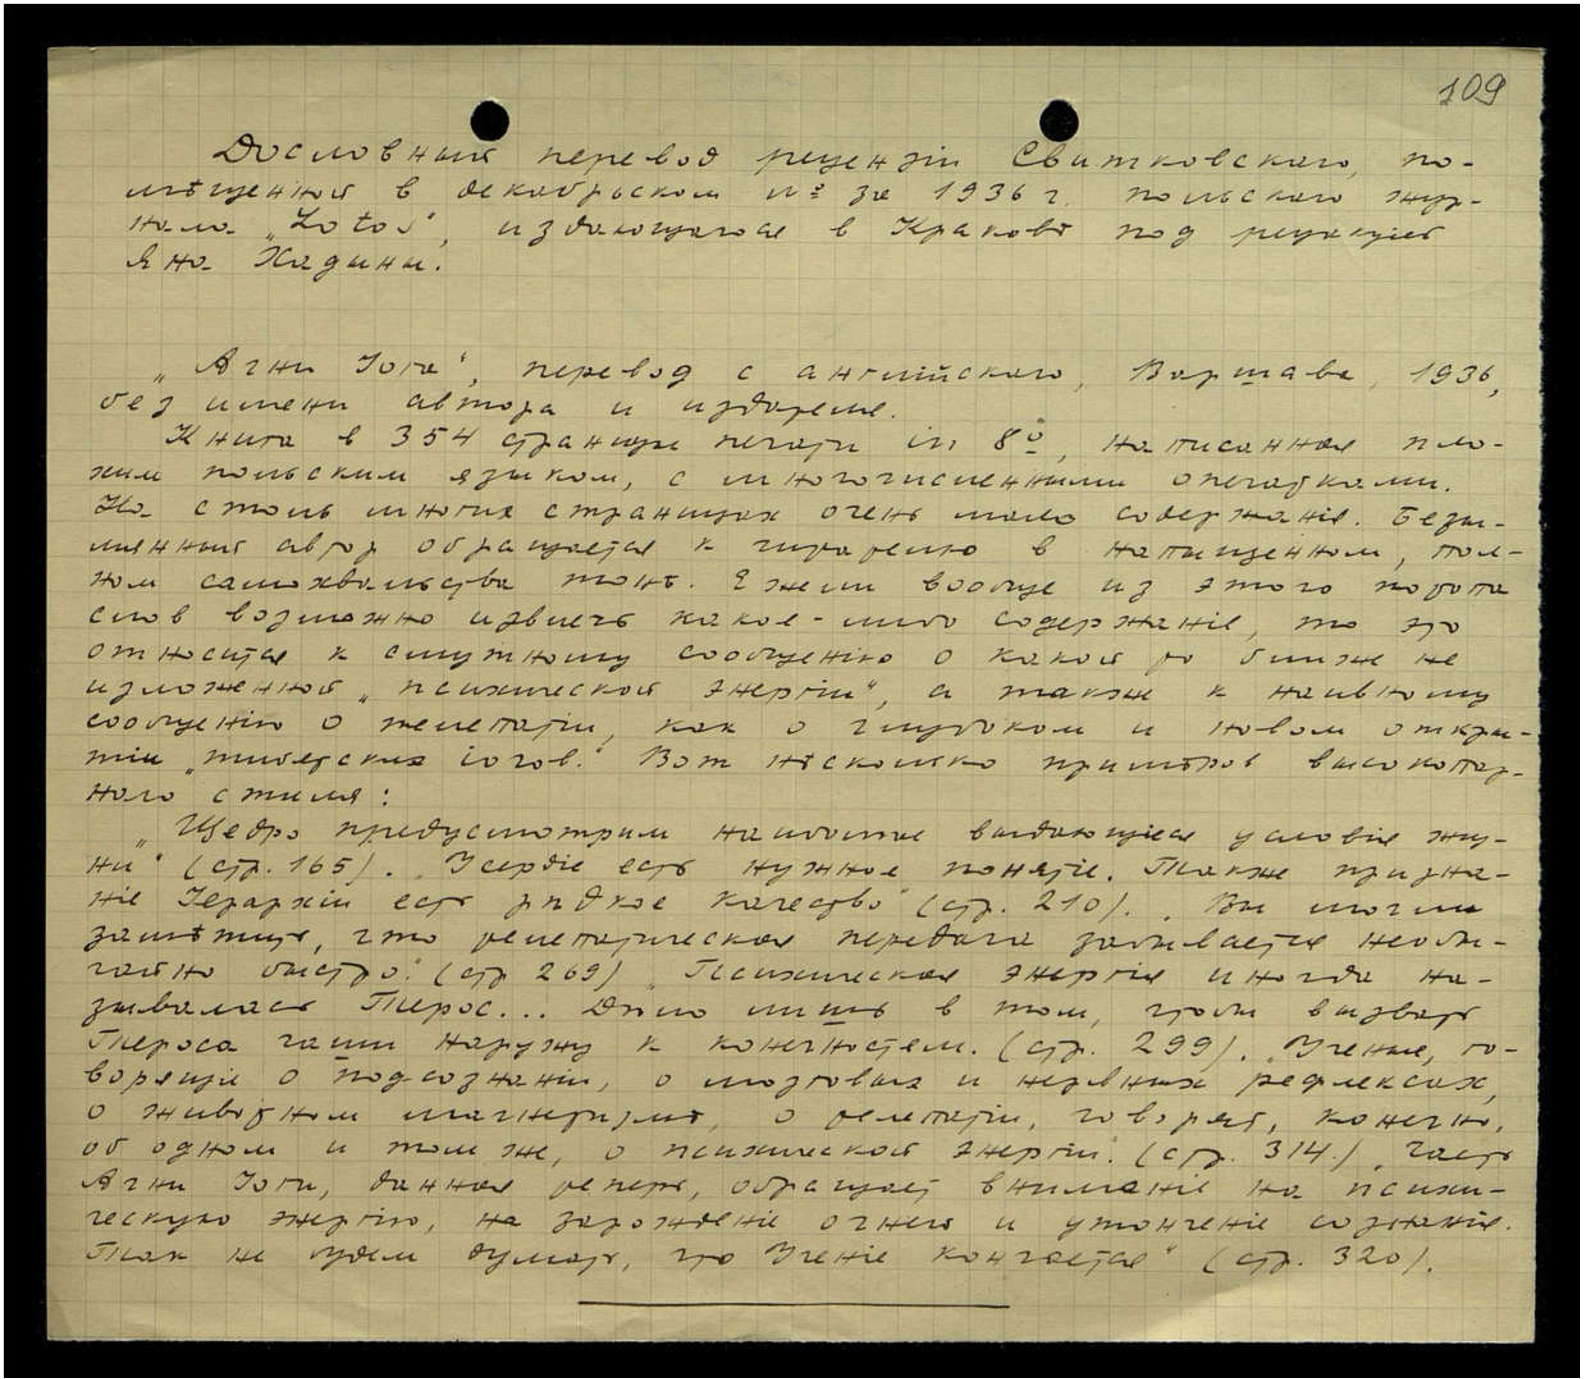 109
Дословный перевод рецензiи Свитковского, по-
мѣщенной в декабрьском № за 1936 г. польскаго жур-
нала „Lotos“, издающагося в Краковѣ под редакцiей
Яна Хадыны.
„Агни Iога“, перевод с английскаго, Варшава, 1936,
без имени автора и издателя.
Книга в 354 страницы печати in 8º, написанная пло-
хим польским языком, с многочисленными опечатками.
На столь многих страницах очень мало содержанiя. Безы-
мянный автор обращается к читателю в напыщенном, пол-
ном самохвальства тонѣ. Ежели вообще из этого потопа
слов возможно извлечь какое-либо содержанiе, то это
относится к смутному сообщенiю о какой то ближе не
изложенной „психической энергiи“, а также к наивному
сообщенiю о телепатiи, как о глубоком и новом откры-
тiи „тибетских iогов.“ Вот нѣсколько примѣров высокопар-
наго стиля:
„Щедро предусмотрим наиболѣе выдающiеся условiя жиз-
ни“ (стр. 165). „Усердiе есть нужное понятiе. Также призна-
нiе Iерархiи есть рѣдкое качество“ (стр. 210). „Вы могли
замѣтить, что телепатическая передача забывается необы-
чайно быстро.“ (стр 269) „Психическая энергiя иногда на-
зывалась Терос... Дѣло лишь в том, чтобы вызвать
Тероса чаши наружу к конечностям. (стр. 299). „Ученые, го-
ворящiе о подсознанiи, о мозговых и нервных рефлексах,
о животном магнетизмѣ, о телепатiи, говорят, конечно,
об одном и том же, о психической энергiи.“ (стр. 314.) „Часть
Агни Iоги, данная теперь, обращает вниманiе на психи-
ческую энергiю, на зарожденiе огней и утонченiе сознанiя.
Так не будем думать, что Ученiе кончается“ (стр. 320).